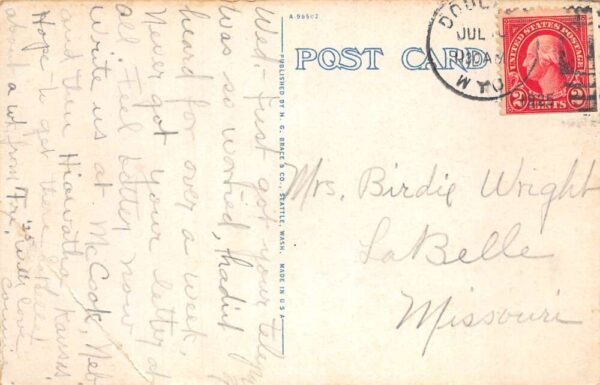 Wed.- Just got your
was so worried, hadn't
heard for over a week,
Never got your letter
all. Feel better now
Write us at McCook, Neb
and then Hiawatha Kansas.
Hope to get there
about a wk from
A-98502
POST CARD
PUBLISHED BY H. G. BRACE & CO., SEATTLE, WASH. MADE IN U S A
DOUGL
JUL
WYO
UNITED STATES POSTAGE
2 CENTS 2
Mrs. Birdie Wright
LaBelle
Missouri